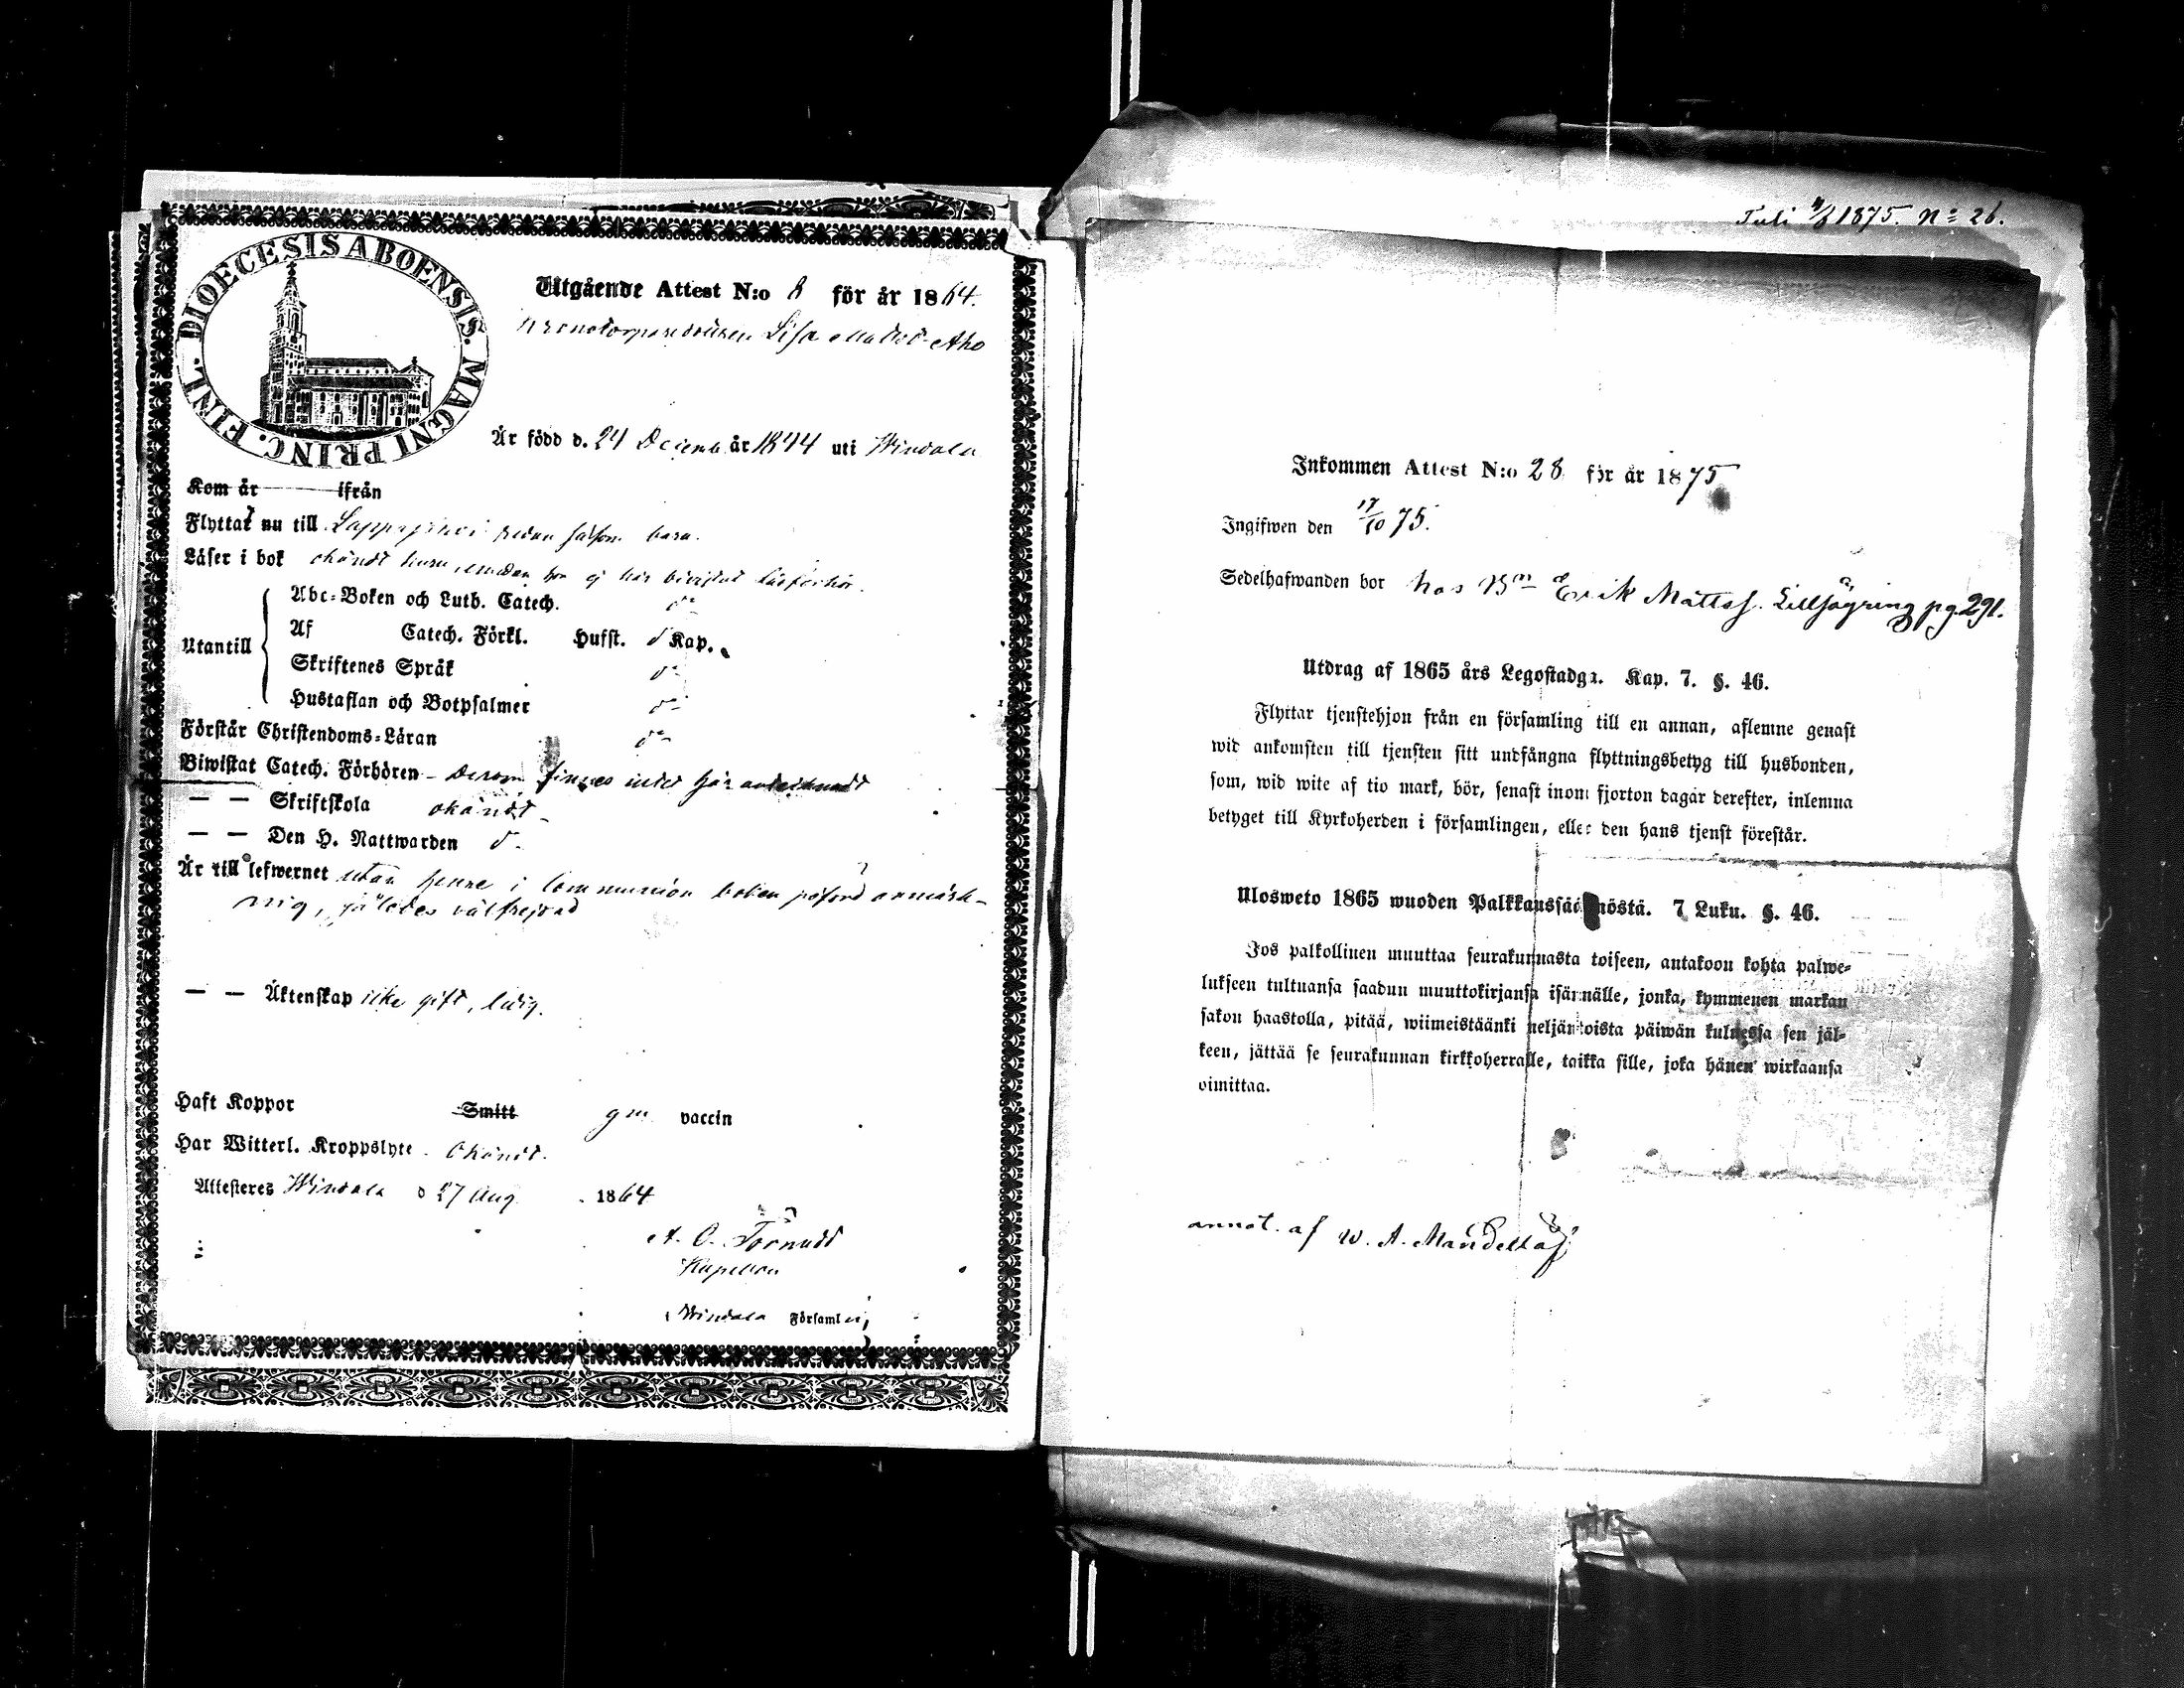 DIOECESIS ABOENSIS. MAGNI PRINC. FINL.
Utgående Attest N:o 8 för år 1864.
Kronotorparedottren Lisa Mattsd. Aho
Är född d. 24 Decemb år 1844 uti Windala
Kom år ifrån
Flyttat nu till Lappajärvi redan såsom barn.
Läser i bok okändt huru, emedan hon ej här bivistat läsförhör.
Utantill
Abc-Boken och Luth. Catech. do
Af Catech. Förkl. Hufst. d Kap.
Skriftenes Språk do
Hustaflan och Botpsalmer do
Förstår Christendoms-Läran do
Biwistat Catech. Förhören - Derom finnes intet här antecknadt
— — Skriftskola okändt
— — Den H. Nattwarden d.
Är till lefwernet utan henne i Communion boken påförd anmärk-
ning, således välfrejdad
— — Äktenskap icke gift, ledig.
Haft Koppor Smitt gm vaccin
Har Witterl. Kroppslyte Okändt.
Attesteres Windala d 27 Aug. 1864
A. O. Törnudd
Kapellan
Windala Församling
Tuli 1875. No 26.
Inkommen Attest N:o 28 för år 1875
Ingifwen den 17/10 75.
Sedelhafwanden bor hos Bn Erik Mattss. Lillsöyring pg. 291.
Utdrag af 1865 års Legostadga. Kap. 7. §. 46.
Flyttar tjenstehjon från en församling till en annan, aflemne genast
wid ankomsten till tjensten sitt undfångna flyttningsbetyg till husbonden,
som, wid wite af tio mark, bör, senast inom fjorton dagar derefter, inlemna
betyget till Kyrkoherden i församlingen, eller den hans tjenst förestår.
Ulosweto 1865 wuoden Palkkaussäännöstä. 7 Luku. §. 46.
Jos palkollinen muuttaa seurakunnasta toiseen, antakoon kohta palwe-
lukseen tultuansa saadun muuttokirjansa isännälle, jonka, kymmenen markan
sakon haastolla, pitää, wiimeistäänki neljäntoista päiwän kuluessa sen jäl-
keen, jättää se seurakunnan kirkkoherralle, taikka sille, joka hänen wirkaansa
oimittaa.
annot. af W. A. Mandellöf